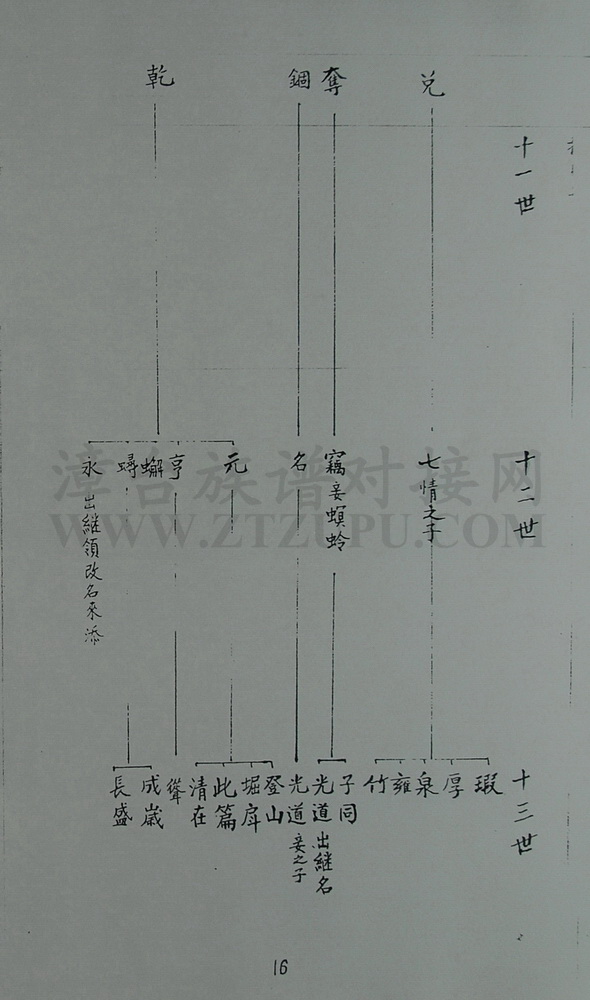 十一世
兑
奪
錮
乾
十二世
七情之子
竊妾螟蛉
名
元
亨
蠏
蟳
永 出繼領改名來添
十三世
瑕
厚
泉
雍
竹
子同
光道 出繼名
光道 妾之子
登山
堀
此篇
清在
聳
成歲
長盛
16
漳台族谱对接网
WWW.ZTZUPU.COM